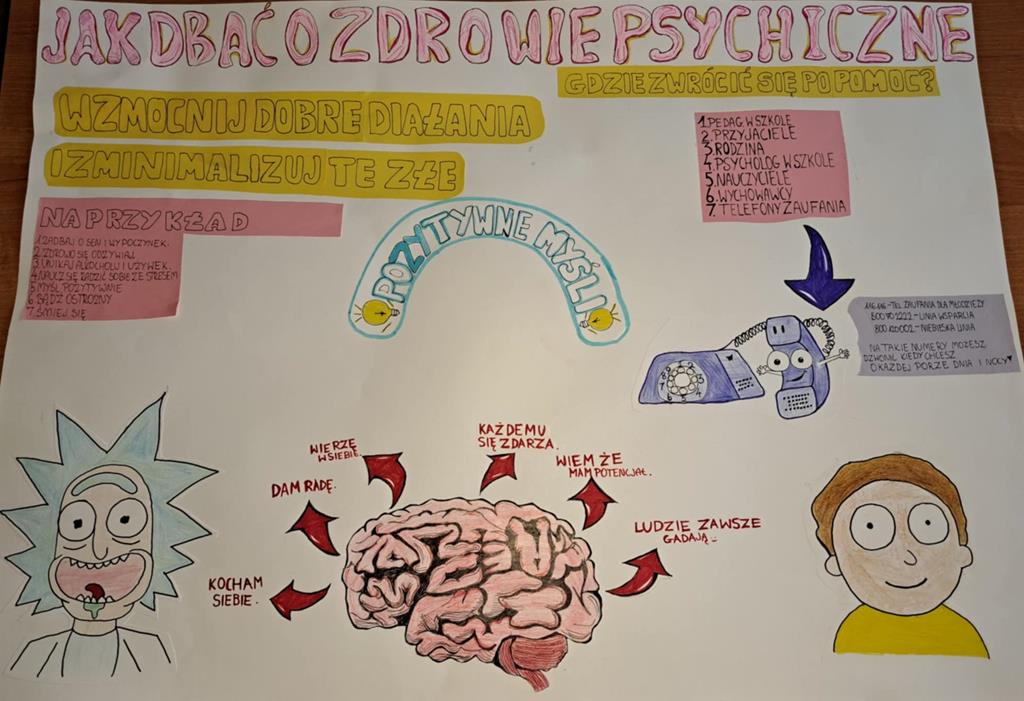 JAK DBAĆ O ZDROWIE PSYCHICZNE
GDZIE ZWRÓCIĆ SIĘ PO POMOC?
WZMOCNIJ DOBRE DIAŁANIA
I ZMINIMALIZUJ TE ZŁE
NA PRZYKŁAD
1. ZADBAJ O SEN I WYPOCZYNEK.
2. ZDROWO SIĘ ODŻYWIAJ
3. UNIKAJ ALKOCHOLU I UŻYWEK.
4. NAUCZ SIĘ RADZIĆ SOBIE ZE STRESEM
5. MYŚL POZYTYWNIE
6. BĄDŹ OSTROŻNY
7. ŚMIEJ SIĘ
POZYTYWNE MYŚLI
1. PEDAG W SZKOLE
2. PRZYJACIELE
3. RODZINA
4. PSYCHOLOG W SZKOLE
5. NAUCZYCIELE
6. WYCHOWAWCY
7. TELEFONY ZAUFANIA
116 116 - TEL ZAUFANIA DLA MŁODZIEŻY
800 70 2222 - LINIA WSPARCIA
800 120 002 - NIEBIESKA LINIA
NA TAKIE NUMERY MOŻESZ
DZWONIĆ KIEDY CHCESZ
O KAŻDEJ PORZE DNIA I NOCY
WIERZĘ
W SIEBIE.
KAŻDEMU
SIĘ ZDARZA.
DAM RADĘ.
WIEM ŻE
MAM POTENCJAŁ.
LUDZIE ZAWSZE
GADAJĄ
KOCHAM
SIEBIE.